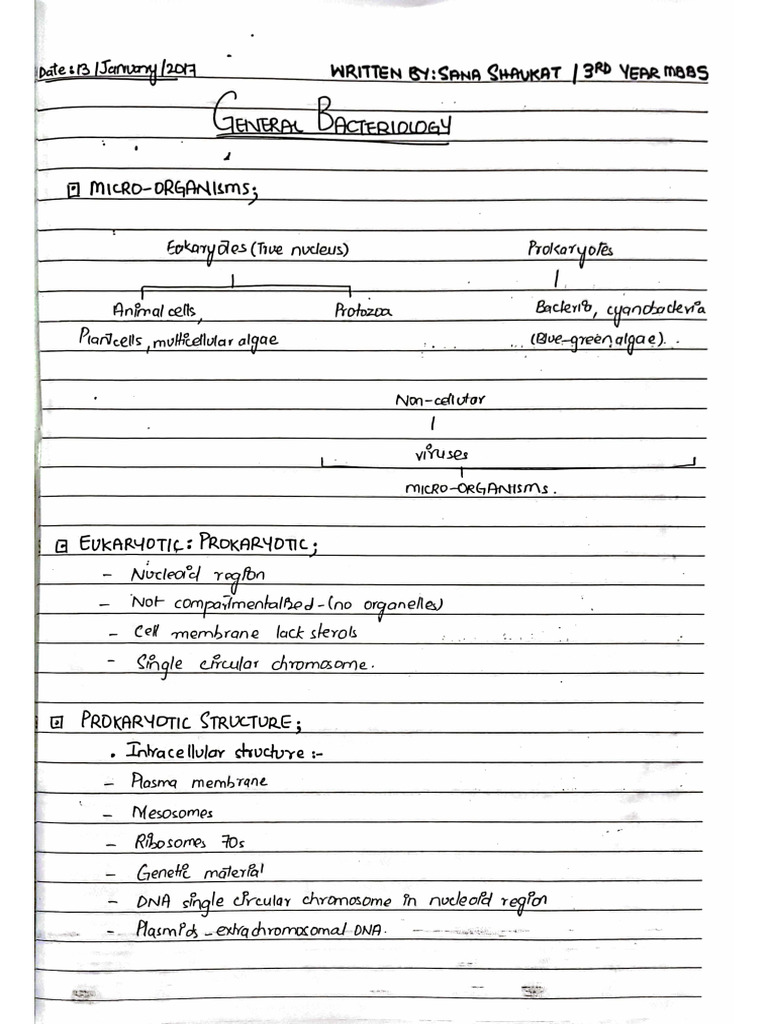 Date: 13/January/2017 WRITTEN BY: SANA SHAUKAT / 3RD YEAR MBBS
GENERAL BACTERIOLOGY
MICRO-ORGANISMS;
Eukaryotes (True nucleus) Prokaryotes
Animal cells, Protozoa Bacteria, cyanobacteria
Plant cells, multicellular algae (Blue-green algae).
Non-cellular
viruses
MICRO-ORGANISMS.
EUKARYOTIC: PROKARYOTIC;
- Nucleoid region
- Not compartmentalised - (no organelles)
- Cell membrane lack sterols
- Single circular chromosome.
PROKARYOTIC STRUCTURE;
• Intracellular structure :-
- Plasma membrane
- Mesosomes
- Ribosomes 70s
- Genetic material
- DNA single circular chromosome in nucleoid region
- Plasmids - extrachromosomal DNA.